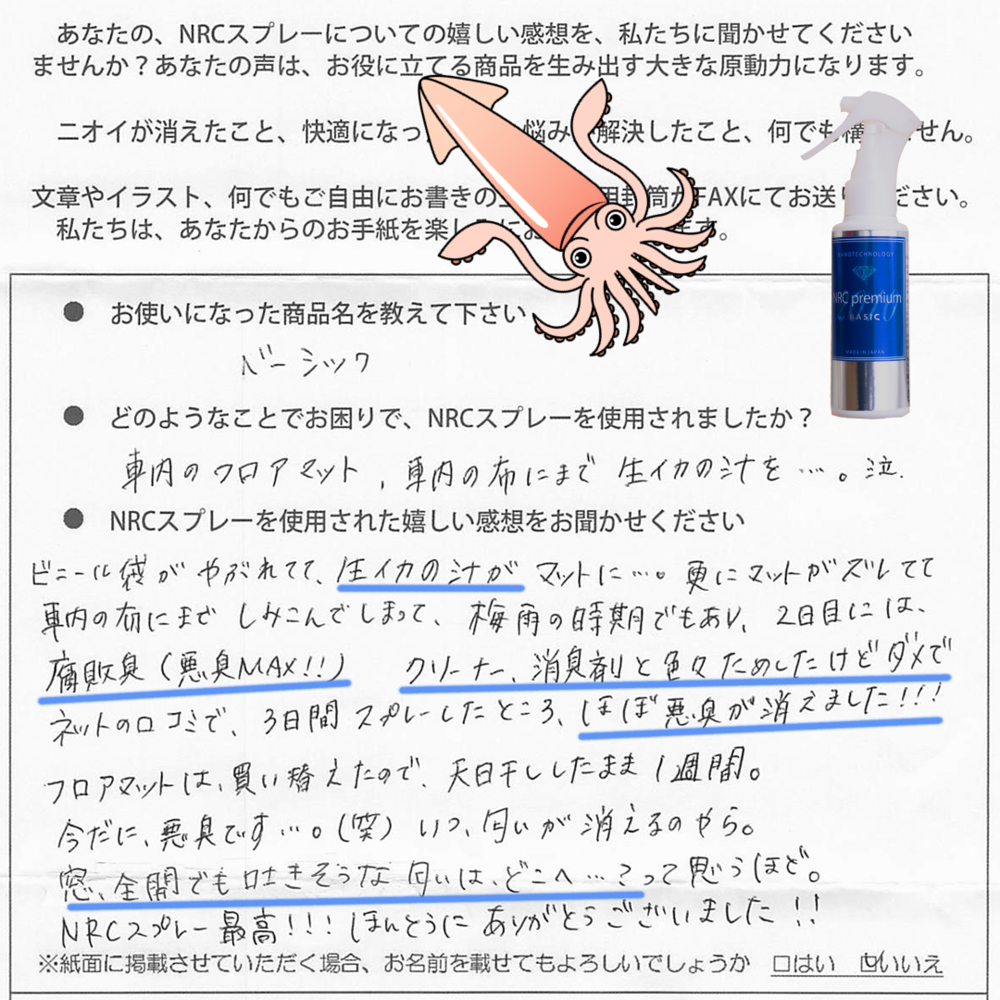 あなたの、NRCスプレーについての嬉しい感想を、私たちに聞かせてください
ませんか？あなたの声は、お役に立てる商品を生み出す大きな原動力になります。
ニオイが消えたこと、快適になっ 悩み 解決したこと、何でも構 せん。
文章やイラスト、何でもご自由にお書きの 用封筒かFAXにてお送り ださい。
私たちは、あなたからのお手紙を楽し に す。
NANOTECHNOLOGY
NRC premium
BASIC
MADE IN JAPAN
● お使いになった商品名を教えて下さい
ベーシック
● どのようなことでお困りで、NRCスプレーを使用されましたか？
車内のフロアマット，車内の布にまで 生イカの汁を…。泣.
● NRCスプレーを使用された嬉しい感想をお聞かせください
ビニール袋が やぶれてて、生イカの汁が マットに…。更にマットがズレてて
車内の布にまで しみこんでしまって、梅雨の時期でもあり、2日目には、
腐敗臭(悪臭MAX!!) クリーナー、消臭剤と色々ためしたけどダメで
ネットの口コミで、3日間 スプレーしたところ、ほぼ悪臭が消えました!!!
フロアマットは、買い替えたので、天日干ししたまま 1週間。
今だに、悪臭です…。(笑) いつ、匂いが 消えるのやら。
窓、全開でも吐きそうな 匂いは、どこへ…?って思うほど。
NRCスプレー 最高!!! ほんとうに ありがとうございました!!
※紙面に掲載させていただく場合、お名前を載せてもよろしいでしょうか □はい ☑いいえ